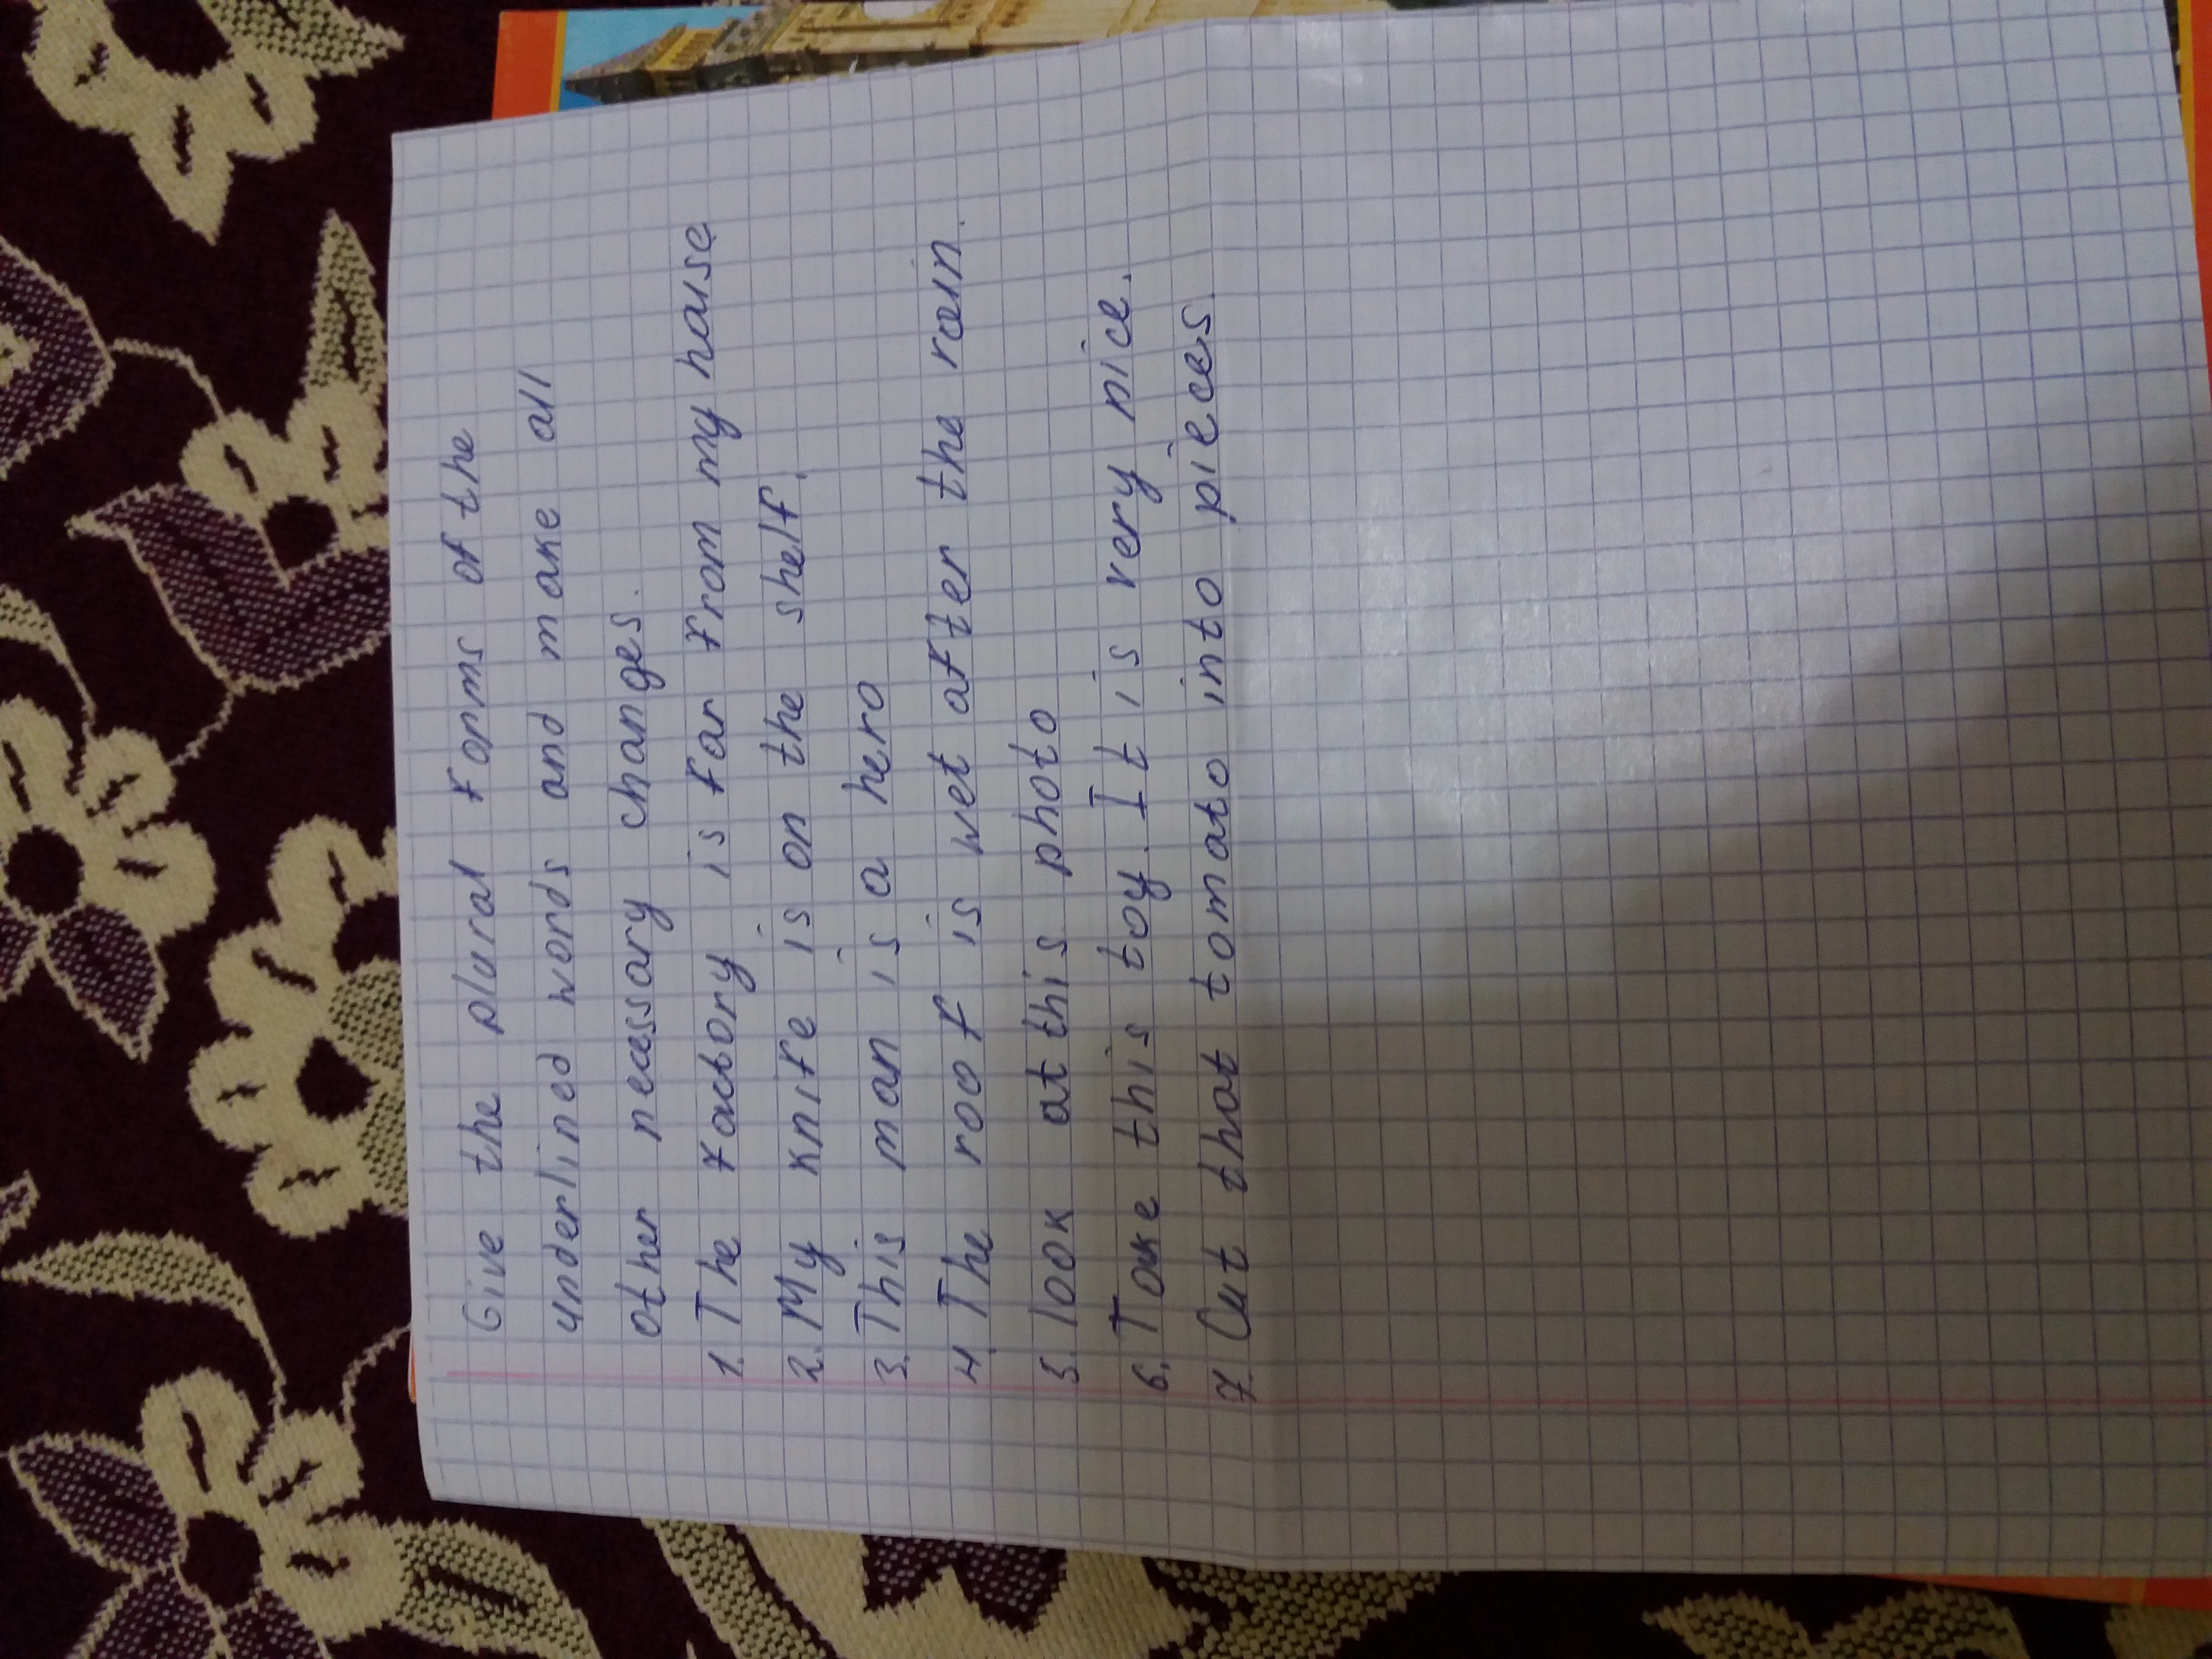 Give the plural forms of the
underlined words and make all
other necessary changes.
1. The factory is far from my hause
2. My knife is on the shelf.
3. This man is a hero
4. The roof is wet after the rain.
5. look at this photo
6. Take this toy. It is very nice.
7. Cut that tomato into pieces.